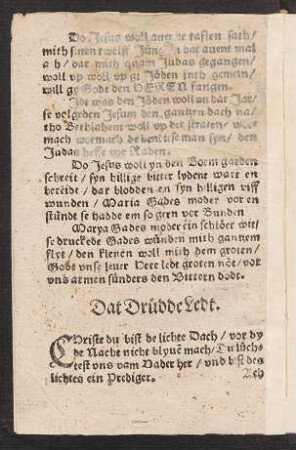 Do Jesus woll auer de taflen sath /
mith sinen twelff Jüngern dat auent mal
a h / dar mith quam Judas gegangen /
woll vp woll vp gi Jöden juth gemein /
will gy Godt den HEREN fangen.
Jdt was den Jöden woll an dat Jar /
se volgeden Jesum den gantzen dach na /
tho Bethlahem woll vp der straten /
mach wormach de man syn / den
Judas heffe vor Raden.
Do Jesus woll yn den Boem garden
schreit / syn hillige bitter lydent wart en
bereidt / dar blodden en syn hilligen viff
wunden / Maria Gades moder vor en
stündt se hadde em so gern vor Bunden
Marya Gades moder ein schlöer wit /
se druckede Gades wunden mith gantzem
flyt / den klenen woll mith dem groten /
Godt vnse leuer Herr ledt groten nöt / vor
vns armen sünders den Bittern dodt.
Dat Drüdde Ledt.
Christe du bist de lichte Dach / vor dy
de Nacht nicht blyuē mach / Du lüch-
test vns vam Vader her / vnd bist des
lichtes ein Prediger.
Ach